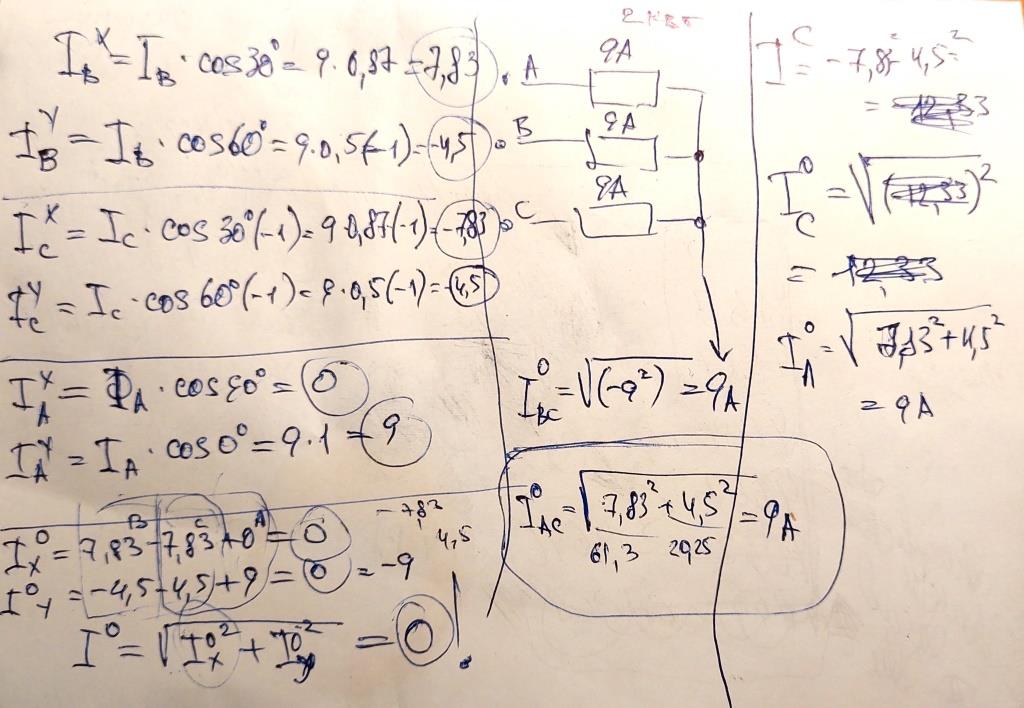 I_B^X = I_B · cos30° = 9·0,87 = 7,83
I_B^Y = I_B · cos60° = 9·0,5(-1) = -4,5
I_C^X = I_C · cos30°(-1) = 9 0,87(-1) = -7,83
I_C^Y = I_C · cos60°(-1) = 9·0,5(-1) = -4,5
I_A^X = I_A · cos90° = 0
I_A^Y = I_A · cos0° = 9·1 = 9
B C A
I_X^0 = 7,83 - 7,83 + 0 = 0
-7,83
4,5
I_Y^0 = -4,5 - 4,5 + 9 = 0 = -9
I^0 = √(I_X^0² + I_Y^0²) = 0 !
A 9A
B 9A
C 9A
I_BC^0 = √(-9²) = 9A
I_AC^0 = √(7,83² + 4,5²) = 9A
61,3 20,25
I_C^0 = √( )²
=
I_A^0 = √(7,83² + 4,5²)
= 9A